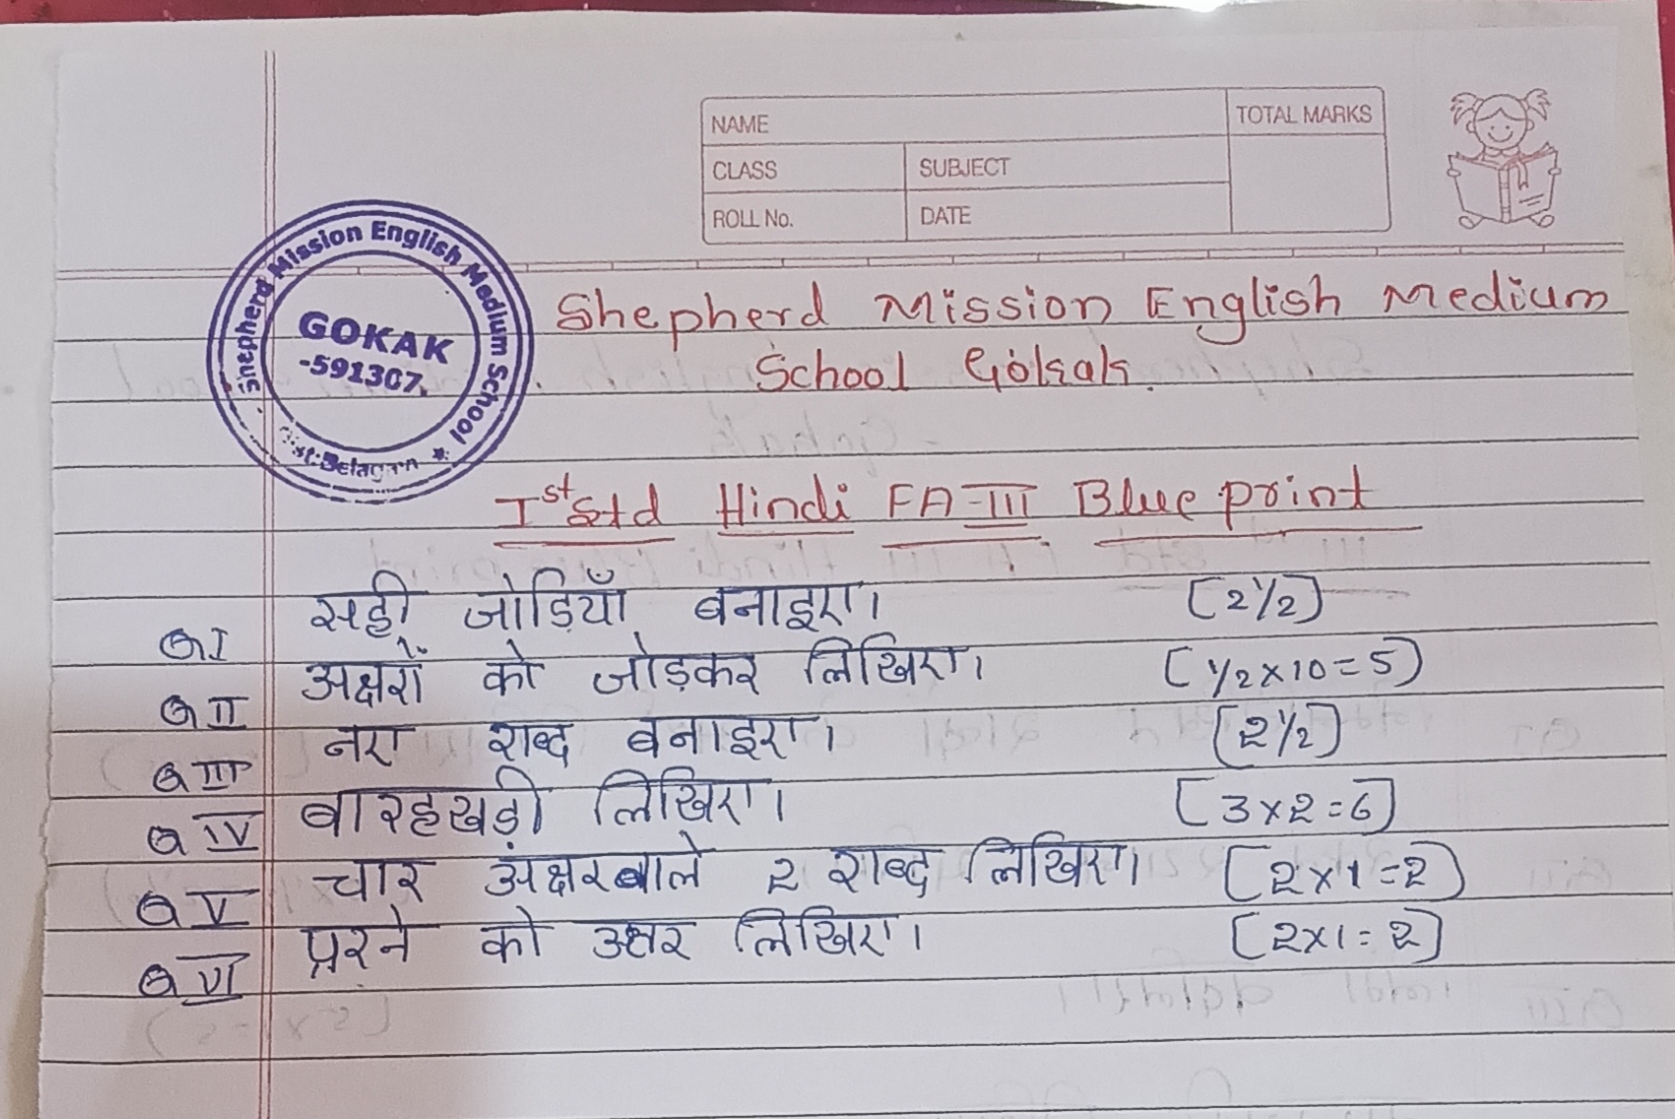 NAME
TOTAL MARKS
CLASS
SUBJECT
ROLL No.
DATE
Shepherd Mission English Medium School
GOKAK
-591307.
Dist: Belagavi
Shepherd Mission English Medium
School Gokak.
Ist Std Hindi FA-III Blue print
QI सही जोड़ियाँ बनाइए। [2½]
QII अक्षरों को जोड़कर लिखिए। [½×10=5]
QIII नए शब्द बनाइए। [2½]
QIV बारहखड़ी लिखिए। [3×2=6]
QV चार अंक्षरबाले 2 शब्द लिखिए। [2×1=2]
QVI प्ररने को उक्षर लिखिए। [2×1=2]